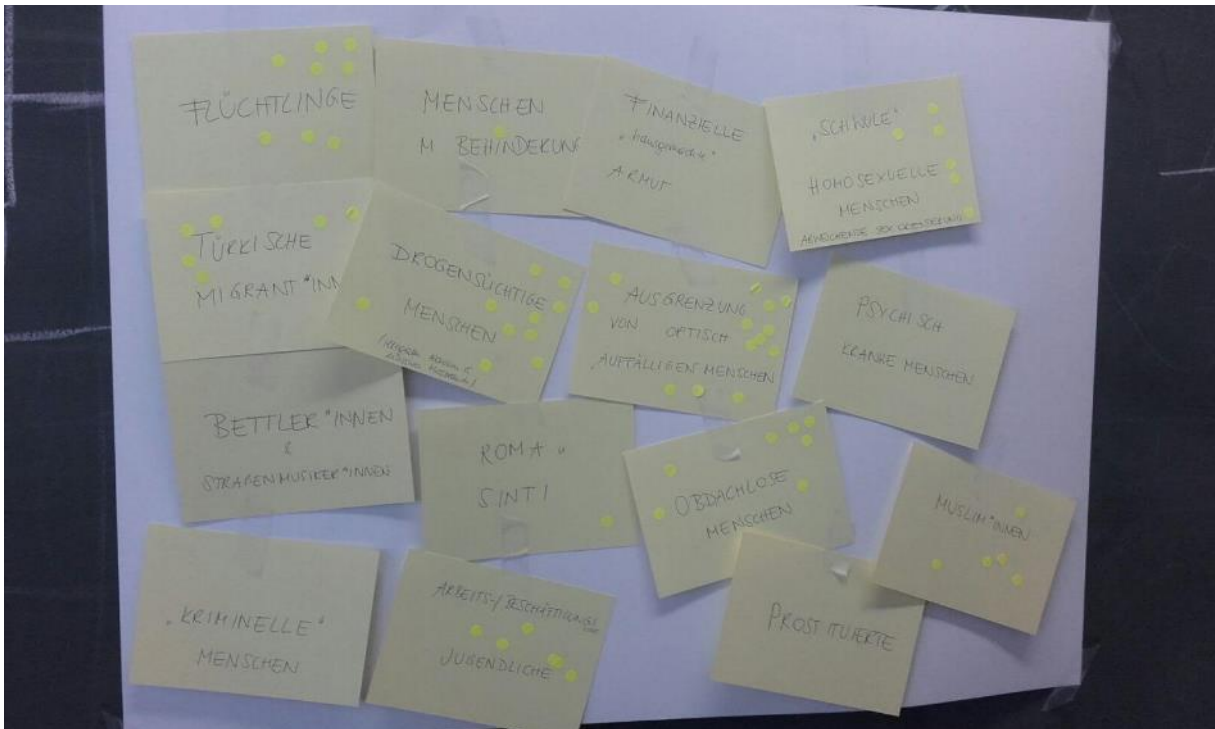 FLÜCHTLINGE
MENSCHEN
M BEHINDERUNG
FINANZIELLE
"hausgemachte"
ARMUT
„SCHWULE"
HOMOSEXUELLE
MENSCHEN
ABWEICHENDE SEX ORIENTIERUNG
TÜRKISCHE
MIGRANT*INN
DROGENSÜCHTIGE
MENSCHEN
AUSGRENZUNG
VON OPTISCH
AUFFÄLLIGEN MENSCHEN
PSYCHISCH
KRANKE MENSCHEN
BETTLER*INNEN
&
STRAßENMUSIKER*INNEN
ROMA u
SINTI
OBDACHLOSE
MENSCHEN
MUSLIM*INNEN
„KRIMINELLE"
MENSCHEN
ARBEITS-/BESCHÄFTIGUNGS
JUGENDLICHE
PROSTITUIERTE